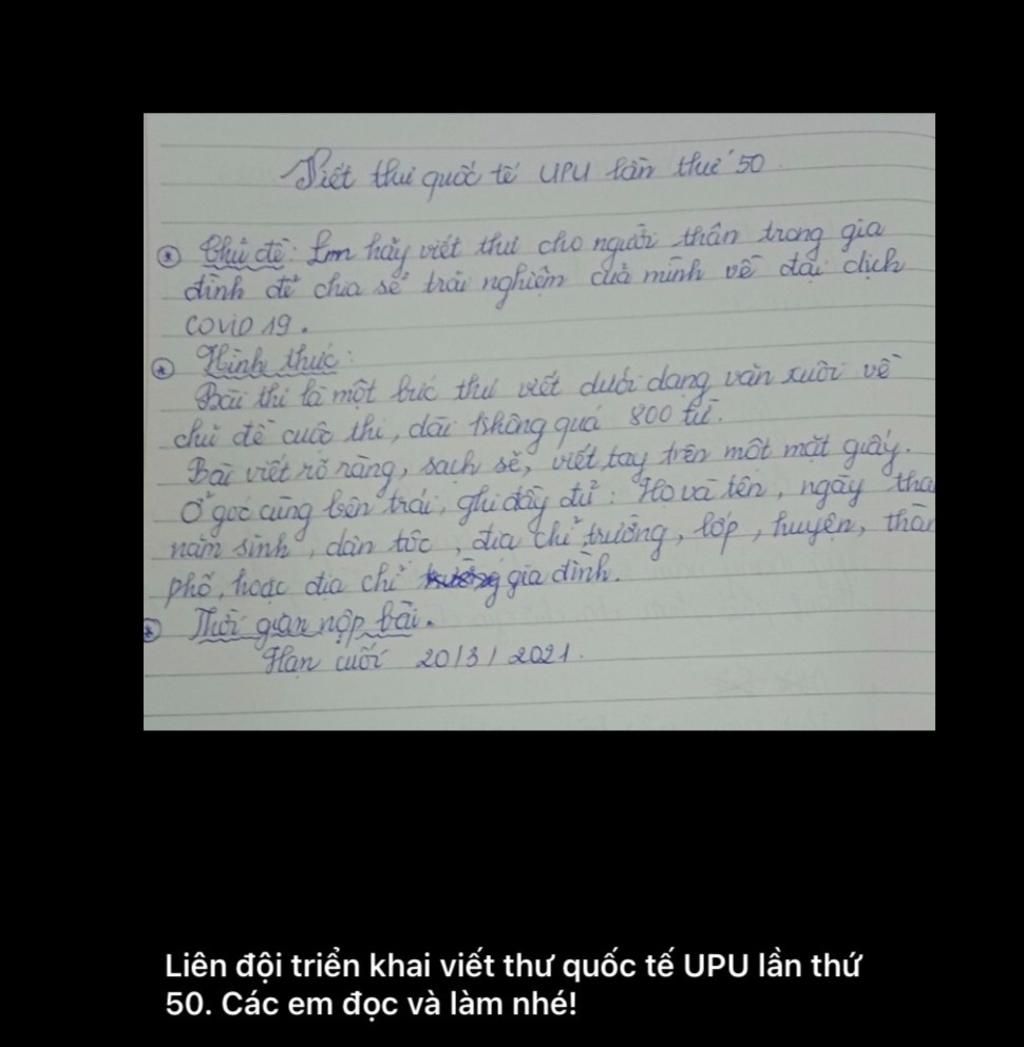 Viết thư quốc tế UPU lần thứ 50.
Chủ đề: Em hãy viết thư cho người thân trong gia
đình để chia sẻ trải nghiệm của mình về đại dịch
COVID 19.
Hình thức:
Bài thi là một bức thư viết dưới dạng văn xuôi về
chủ đề cuộc thi, dài không quá 800 từ.
Bài viết rõ ràng, sạch sẽ, viết tay trên một mặt giấy.
Ở góc cùng bên trái, ghi đầy đủ: Họ và tên, ngày thá
năm sinh, dân tộc, địa chỉ trường, lớp, huyện, thàn
phố, hoặc địa chỉ gia đình.
Thời gian nộp bài.
Hạn cuối 20/3/2021.
Liên đội triển khai viết thư quốc tế UPU lần thứ
50. Các em đọc và làm nhé!